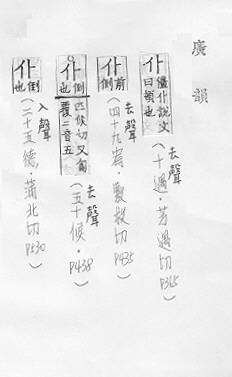 廣韻
仆 僵仆說文曰頓也
去聲(十遇·芳遇切P365)
仆 前倒
去聲(四十九宥·敷救切P435)
仆 倒也 匹候切又匐覆二音五
去聲(五十候·P438)
仆 倒也
入聲(二十五德·蒲北切P530)